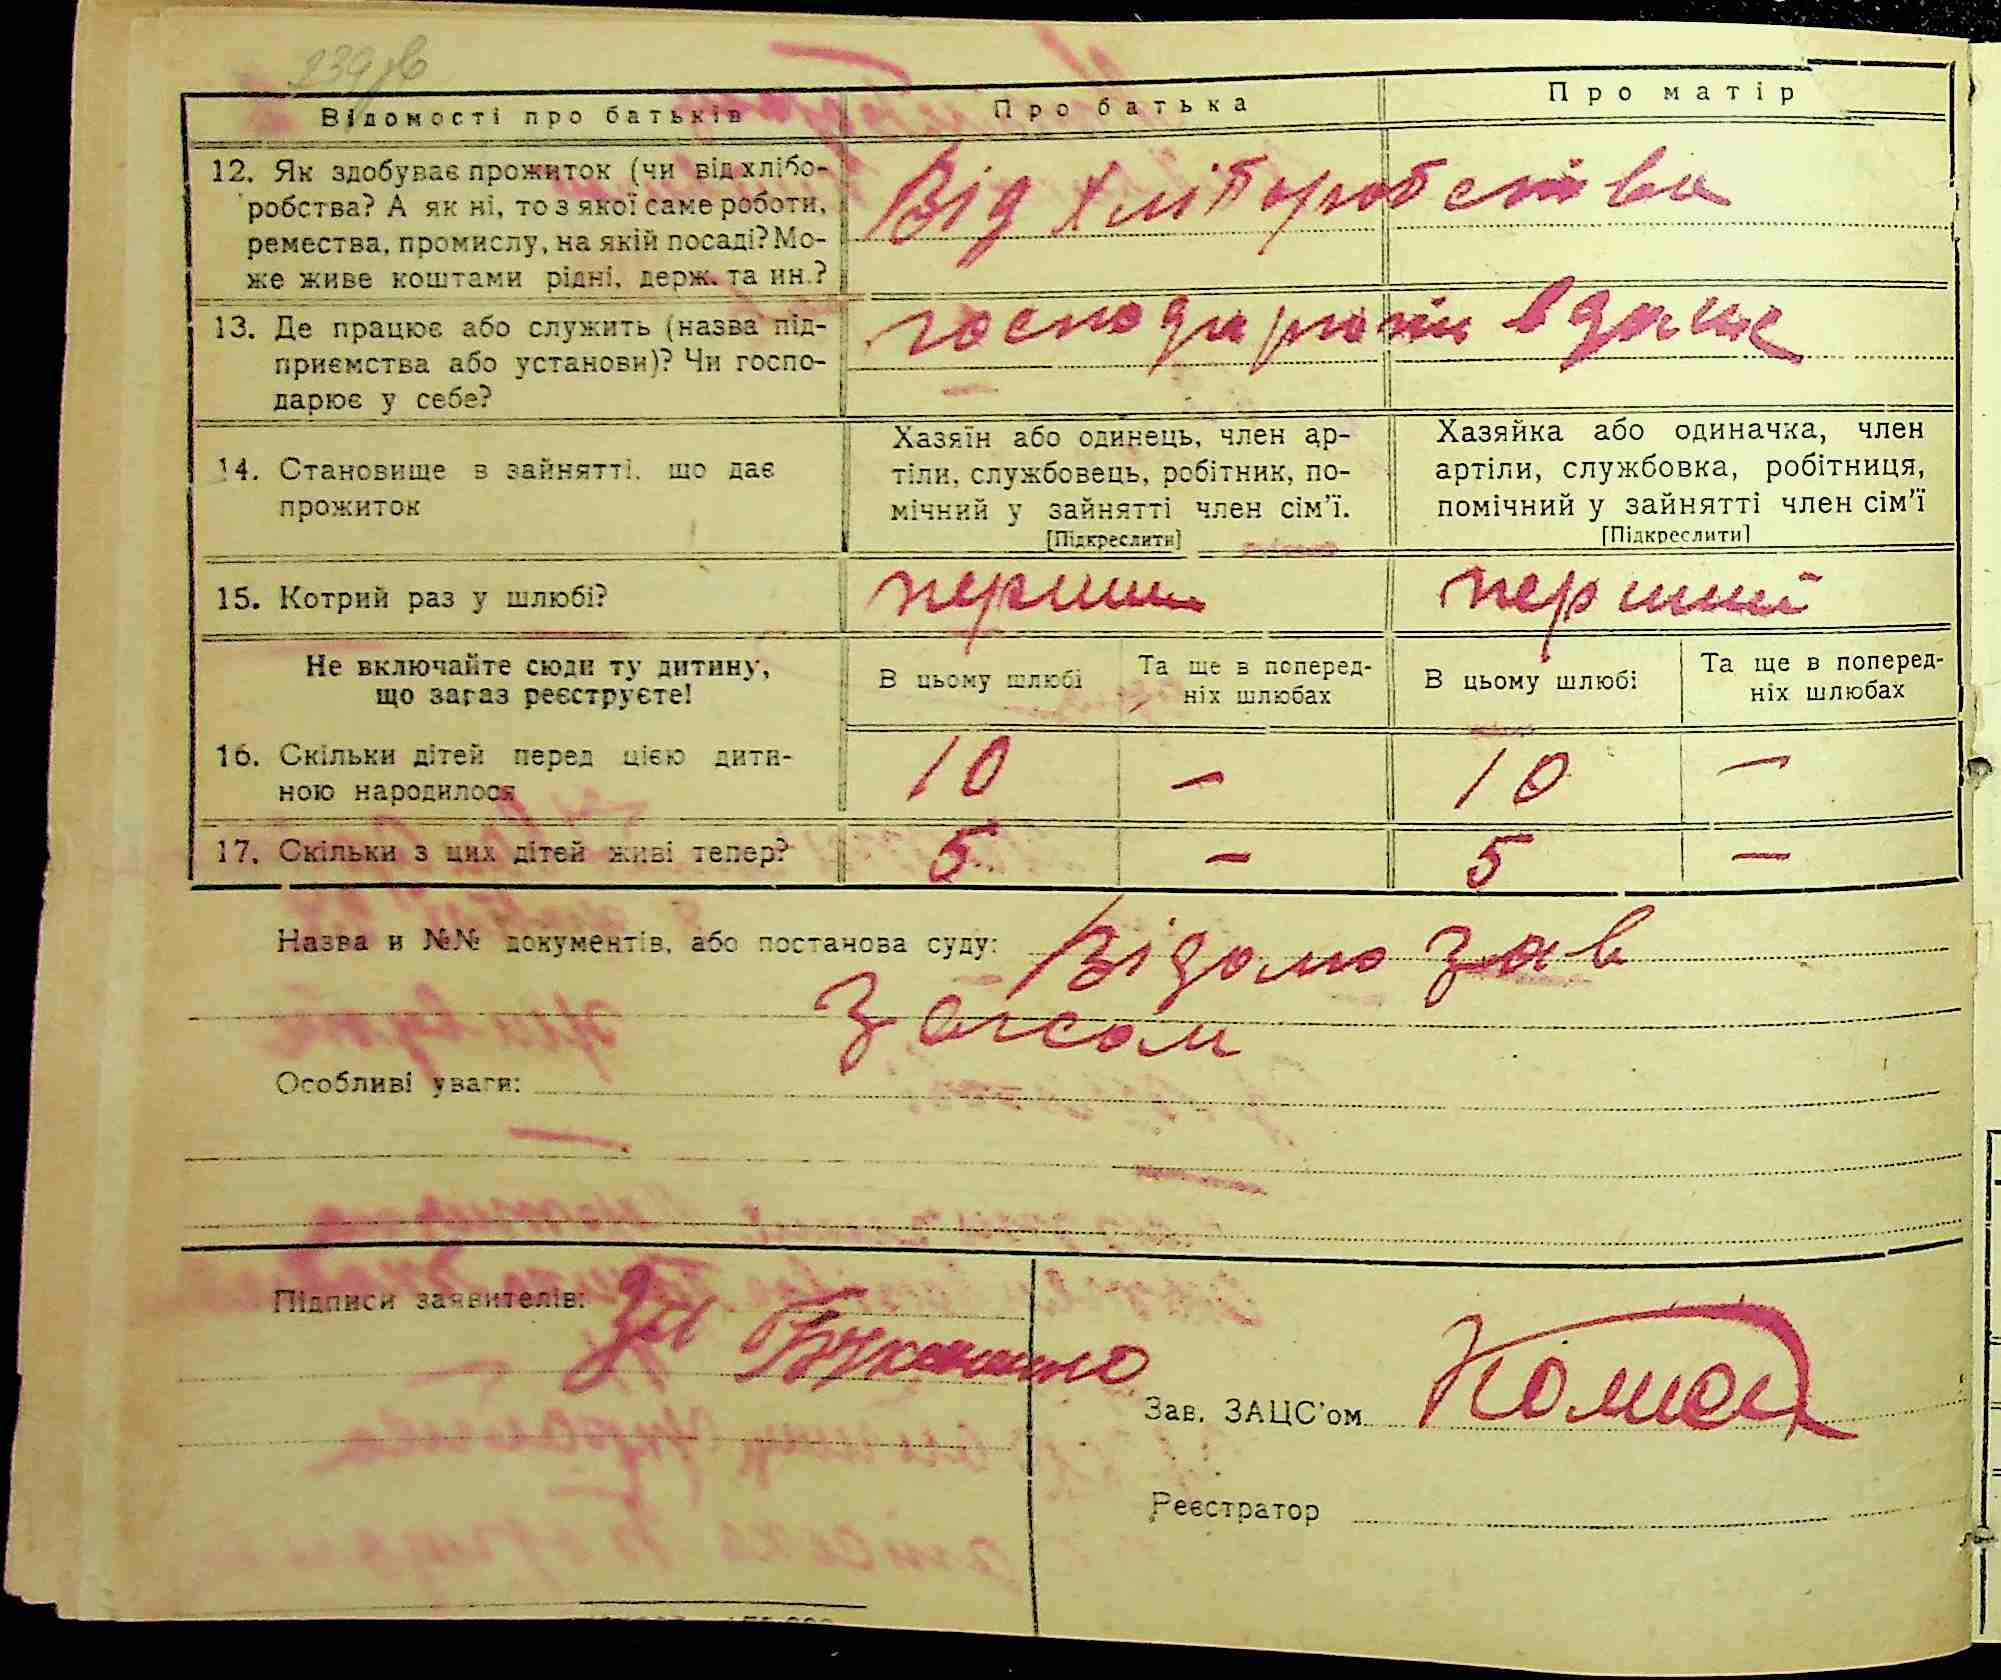 Відомості про батьків
Про батька
Про матір
12. Як здобуває прожиток (чи від хлібо-
робства? А як ні, то з якої саме роботи,
ремества, промислу, на якій посаді? Мо-
же живе коштами рідні, держ. та ин.?
Від хліборобства
13. Де працює або служить (назва під-
приємства або установи)? Чи госпо-
дарює у себе?
14. Становище в зайнятті, що дає
прожиток
Хазяїн або одинець, член ар-
тіли, службовець, робітник, по-
мічний у зайнятті член сім'ї.
[Підкреслити]
Хазяйка або одиначка, член
артіли, службовка, робітниця,
помічний у зайнятті член сім'ї
[Підкреслити]
15. Котрий раз у шлюбі?
перший
перший
Не включайте сюди ту дитину,
що зараз реєструєте!
В цьому шлюбі
Та ще в поперед-
ніх шлюбах
В цьому шлюбі
Та ще в поперед-
ніх шлюбах
16. Скільки дітей перед цією дити-
ною народилося
10 – 10 –
17. Скільки з цих дітей живі тепер?
5 – 5 –
Назва и №№ документів, або постанова суду: Відомо зав
Загсом
Особливі уваги:
Підписи заявителів: За
Зав. ЗАЦС'ом
Реєстратор